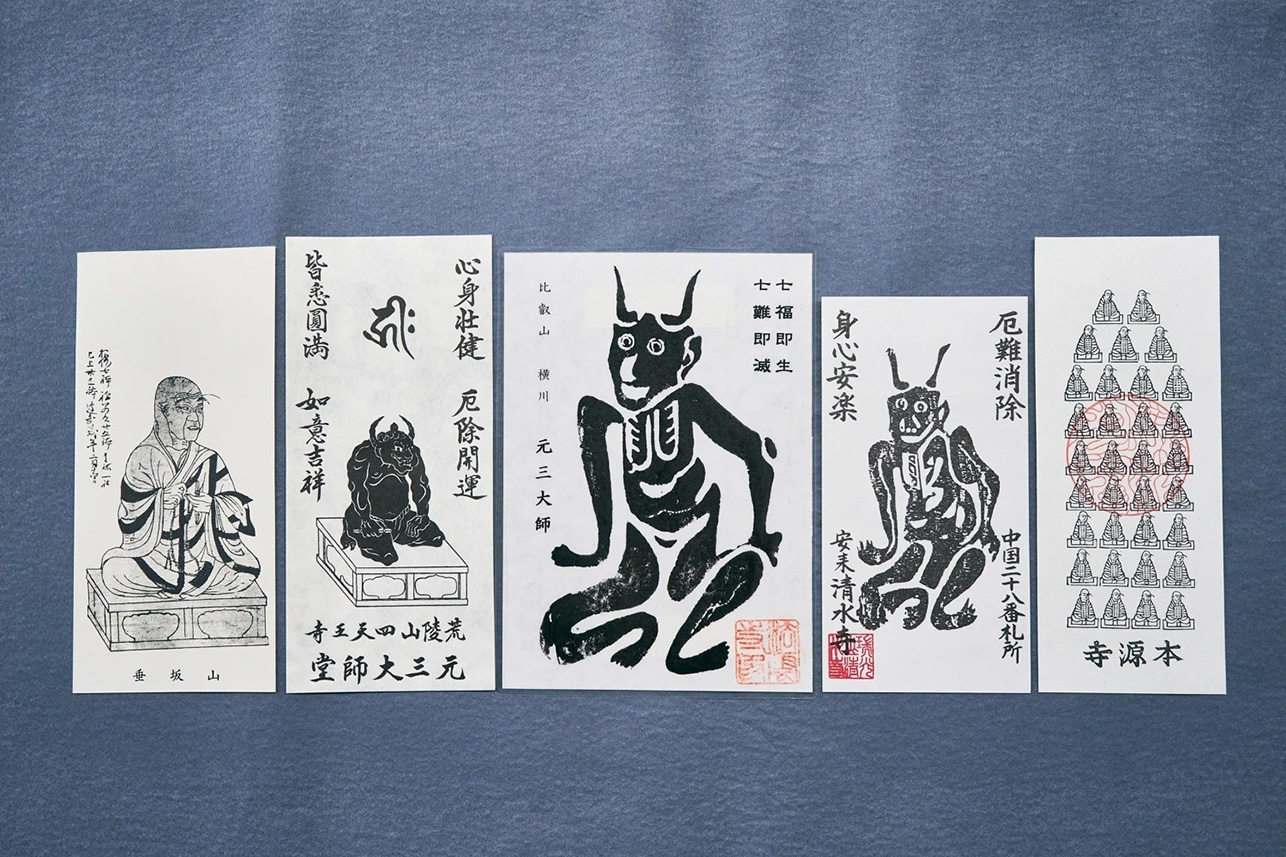 山坂垂
心身壮健
皆悉圓満
厄除開運
如意吉祥
荒陵山四天王寺
元三大師堂
七福即生
七難即滅
比叡山 横川 元三大師
厄難消除
身心安楽
中国二十八番札所
安来清水寺
本源寺